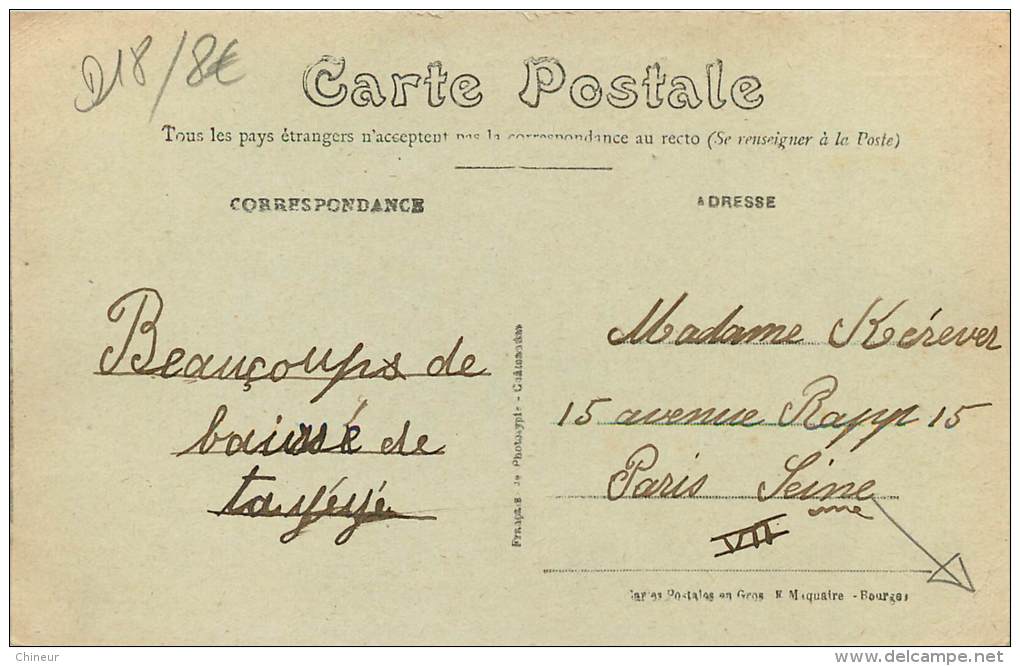 D18/8€
Carte Postale
Tous les pays étrangers n'acceptent pas la correspondance au recto (Se renseigner à la Poste)
CORRESPONDANCE
ADRESSE
Beauçoups de
baissé de
tayéyé
Madame Kérever
15 avenue Rapp 15
Paris Seine
VII me
Française de Photocypie - Châteauroux
Cartes Postales en Gros E Maquaire - Bourges
Chineur
www.delcampe.net